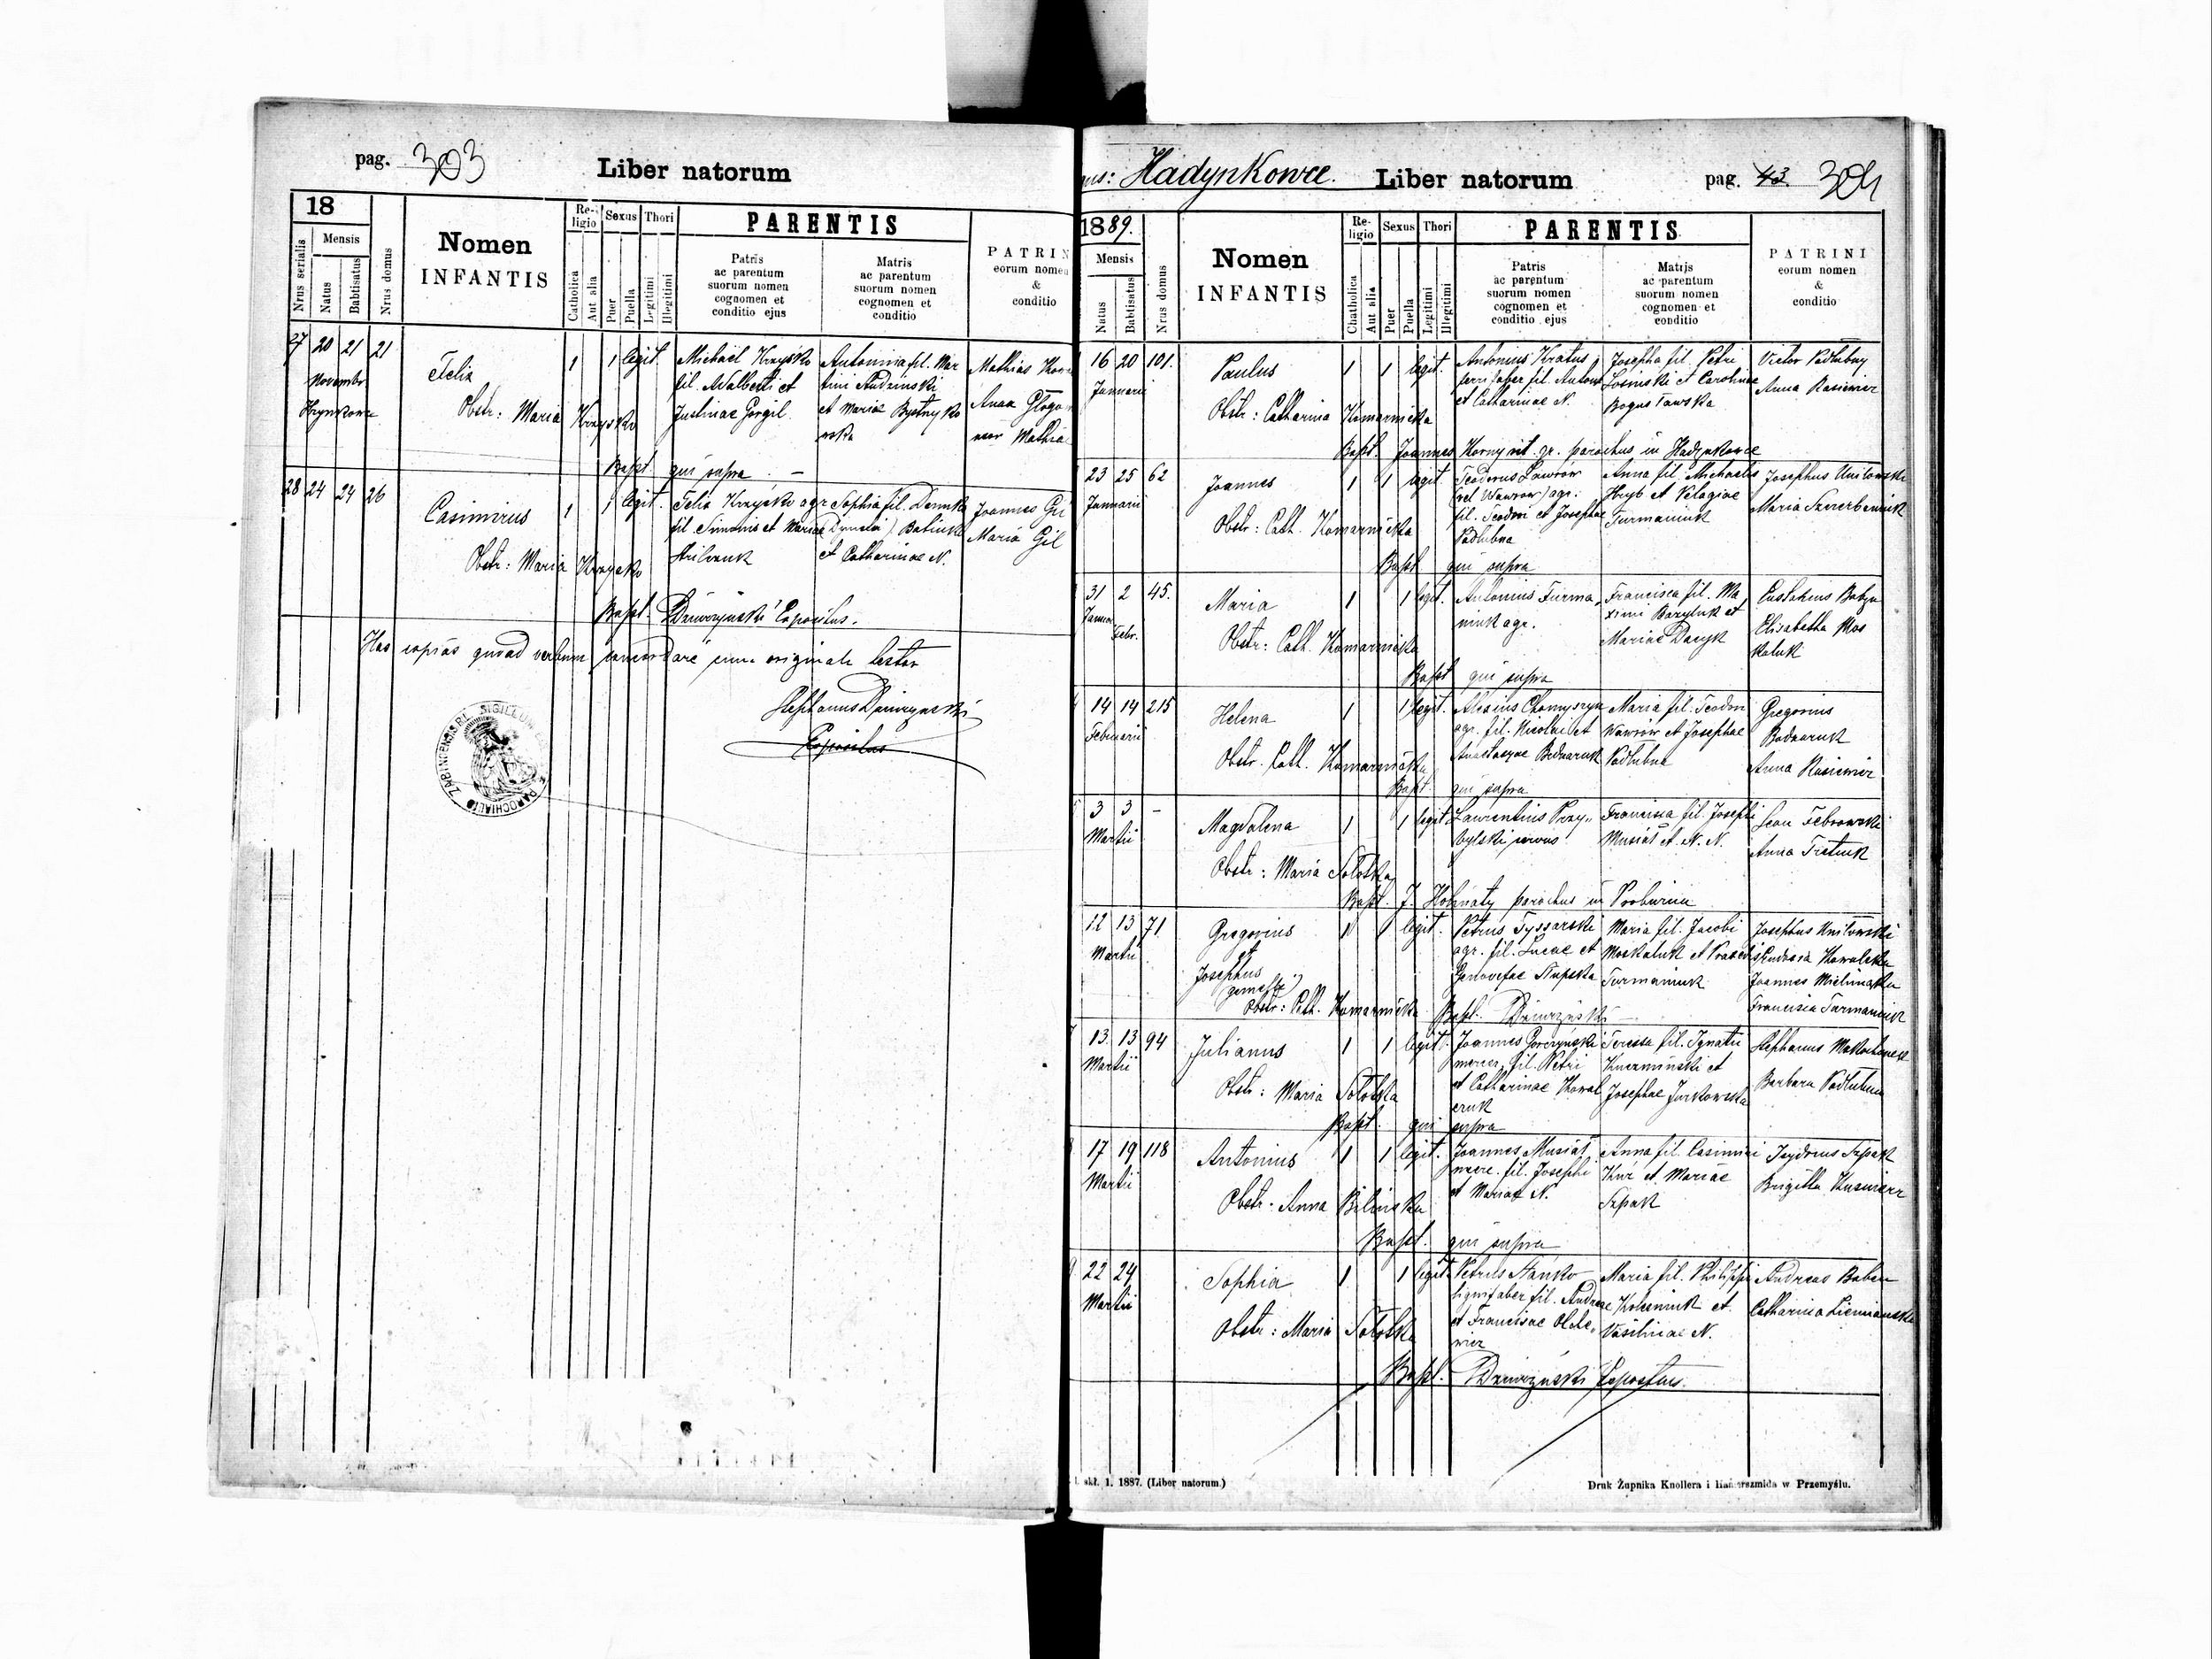 pag. 303
Liber natorum
18
Nrus serialis
Mensis
Natus
Babtisatus
Nrus domus
Nomen
INFANTIS
Religio
Catholica
Aut alia
Sexus
Puer
Puella
Thori
Legitimi
Illegitimi
PARENTIS
Patris
ac parentum
suorum nomen
cognomen et
conditio ejus
Matris
ac parentum
suorum nomen
cognomen et
conditio
PATRIN
eorum nomen
&
conditio
27 20 21 21
Novembr
Felix
1 1 legit.
Obstr: Maria Krzysko
Michael Krzysko
fil. Adalberti et
Justinae Gorgil
Antonina fil. Mar
tini Andrinski
et Mariae
Mathias
Anna
Bapt. qui supra
28 24 24 26
Casimirus
1 1 legit.
Obstr: Maria Krzysko
Felix Krzysko agr
fil Simonis et Mariae
Sophia fil.
et Catharinae N.
Joannes Gil
Maria Gil
Bapt. Dziurzyński Expositus.
Has copias quoad verbum concordare cum originali testor
Stephanus Dziurzynski
Expositus
SIGILLUM
PAROCHIALIS
Hadynkowce.
Liber natorum
pag. 43. 304
1889.
Mensis
Natus
Babtisatus
Nrus domus
Nomen
INFANTIS
Religio
Chatholica
Aut alia
Sexus
Puer
Puella
Thori
Legitimi
Illegitimi
PARENTIS
Patris
ac parentum
suorum nomen
cognomen et
conditio ejus
Matris
ac parentum
suorum nomen
cognomen et
conditio
PATRINI
eorum nomen
&
conditio
16 20 101.
Januarii
Paulus
1 1 legit.
Obstr: Catharina Komarnicka
Antonius Kratus
ferri faber fil. Antoni
et Catharinae N.
Josepha fil. Petri
Losinski et Carolinae
Bogusławska
Victor Podlubny
Anna Rasiewicz
Bapt. Joannes Korny rit. gr. parochus in Hadynkowce
23 25 62
Januarii
Joannes
1 1 legit
Obstr: Cath. Komarnicka
Teodorus Lawrów
(vel Wawrow) agr.
fil. Teodori et Josephae
Podlubna
Anna fil. Michaelis
Hryb et Pelagiae
Furmaniuk
Josephus
Maria
Bapt qui supra
31 2 45.
Januar
Febr.
Maria
1 1 legit.
Obstr: Cath. Komarnicka
Antonius Furma
niuk agr.
Francisca fil. Ma
ximi Baryluk et
Mariae Dacyk
Eustachius
Elisabetha Mos
kaluk
Bapt qui supra
14 14 215
Februarii
Helena
1 1 legit.
Obstr. Cath. Komarnicka
Alexius Chomyszyn
agr. fil. Nicolai et
Bednaruk
Maria fil. Teodori
Wawrów et Josephae
Podlubna
Gregorius
Bednaruk
Anna Rasiewicz
Bapt. qui supra
3 3 -
Martii
Magdalena
1 1 legit.
Obstr: Maria Sototka
Laurentius Przy„
bylski servus
Francisca fil. Josephi
Musiał et N. N.
Anna
Bapt. J. Hołinaty parochus in Probużna
12 13 71
Martii
Gregorius
et
Josephus
(gemelli)
1 1 legit.
Obstr: Cath. Komarnicka
Petrus Tyssarski
agr. fil. Lucae et
Genovefae Słupska
Maria fil. Jacobi
Moskaluk et
Furmaniuk
Josephus
Kowalska
Joannes
Francisca Furmaniuk
Bapt. Dziurzyński
13. 13 94
Martii
Julianus
1 1 legit.
Obstr: Maria Sototka
Joannes Gorczyński
mercer. fil. Petri
et Catharinae Kowal
czuk
Teressa fil. Ignatii
Kuczminski et
Josephae Jurkowska
Stephanus
Barbara Podlubna
Bapt. qui supra
17 19 118
Martii
Antonius
1 1 legit.
Obstr. Anna Bilinska
Joannes Musiał
merc. fil. Josephi
et Mariae N.
Anna fil. Casimiri
Kur et Mariae
Szpak
Isydorus Szpak
Brigitta
Bapt. qui supra
22 24
Martii
Sophia
1 1 legit
Obstr: Maria Sototka
Petrus Stańko
lignifaber fil. Andreae
et Franciscae Olele„
wicz
Maria fil. Philippi
et
Vasilinae N.
Andreas Baben
Catharina Ziemianska
Bapt. Dziurzyński Expositus.
skł. 1. 1887. (Liber natorum.)
Druk Żupnika Knollera i Hamerszmida w Przemyślu.